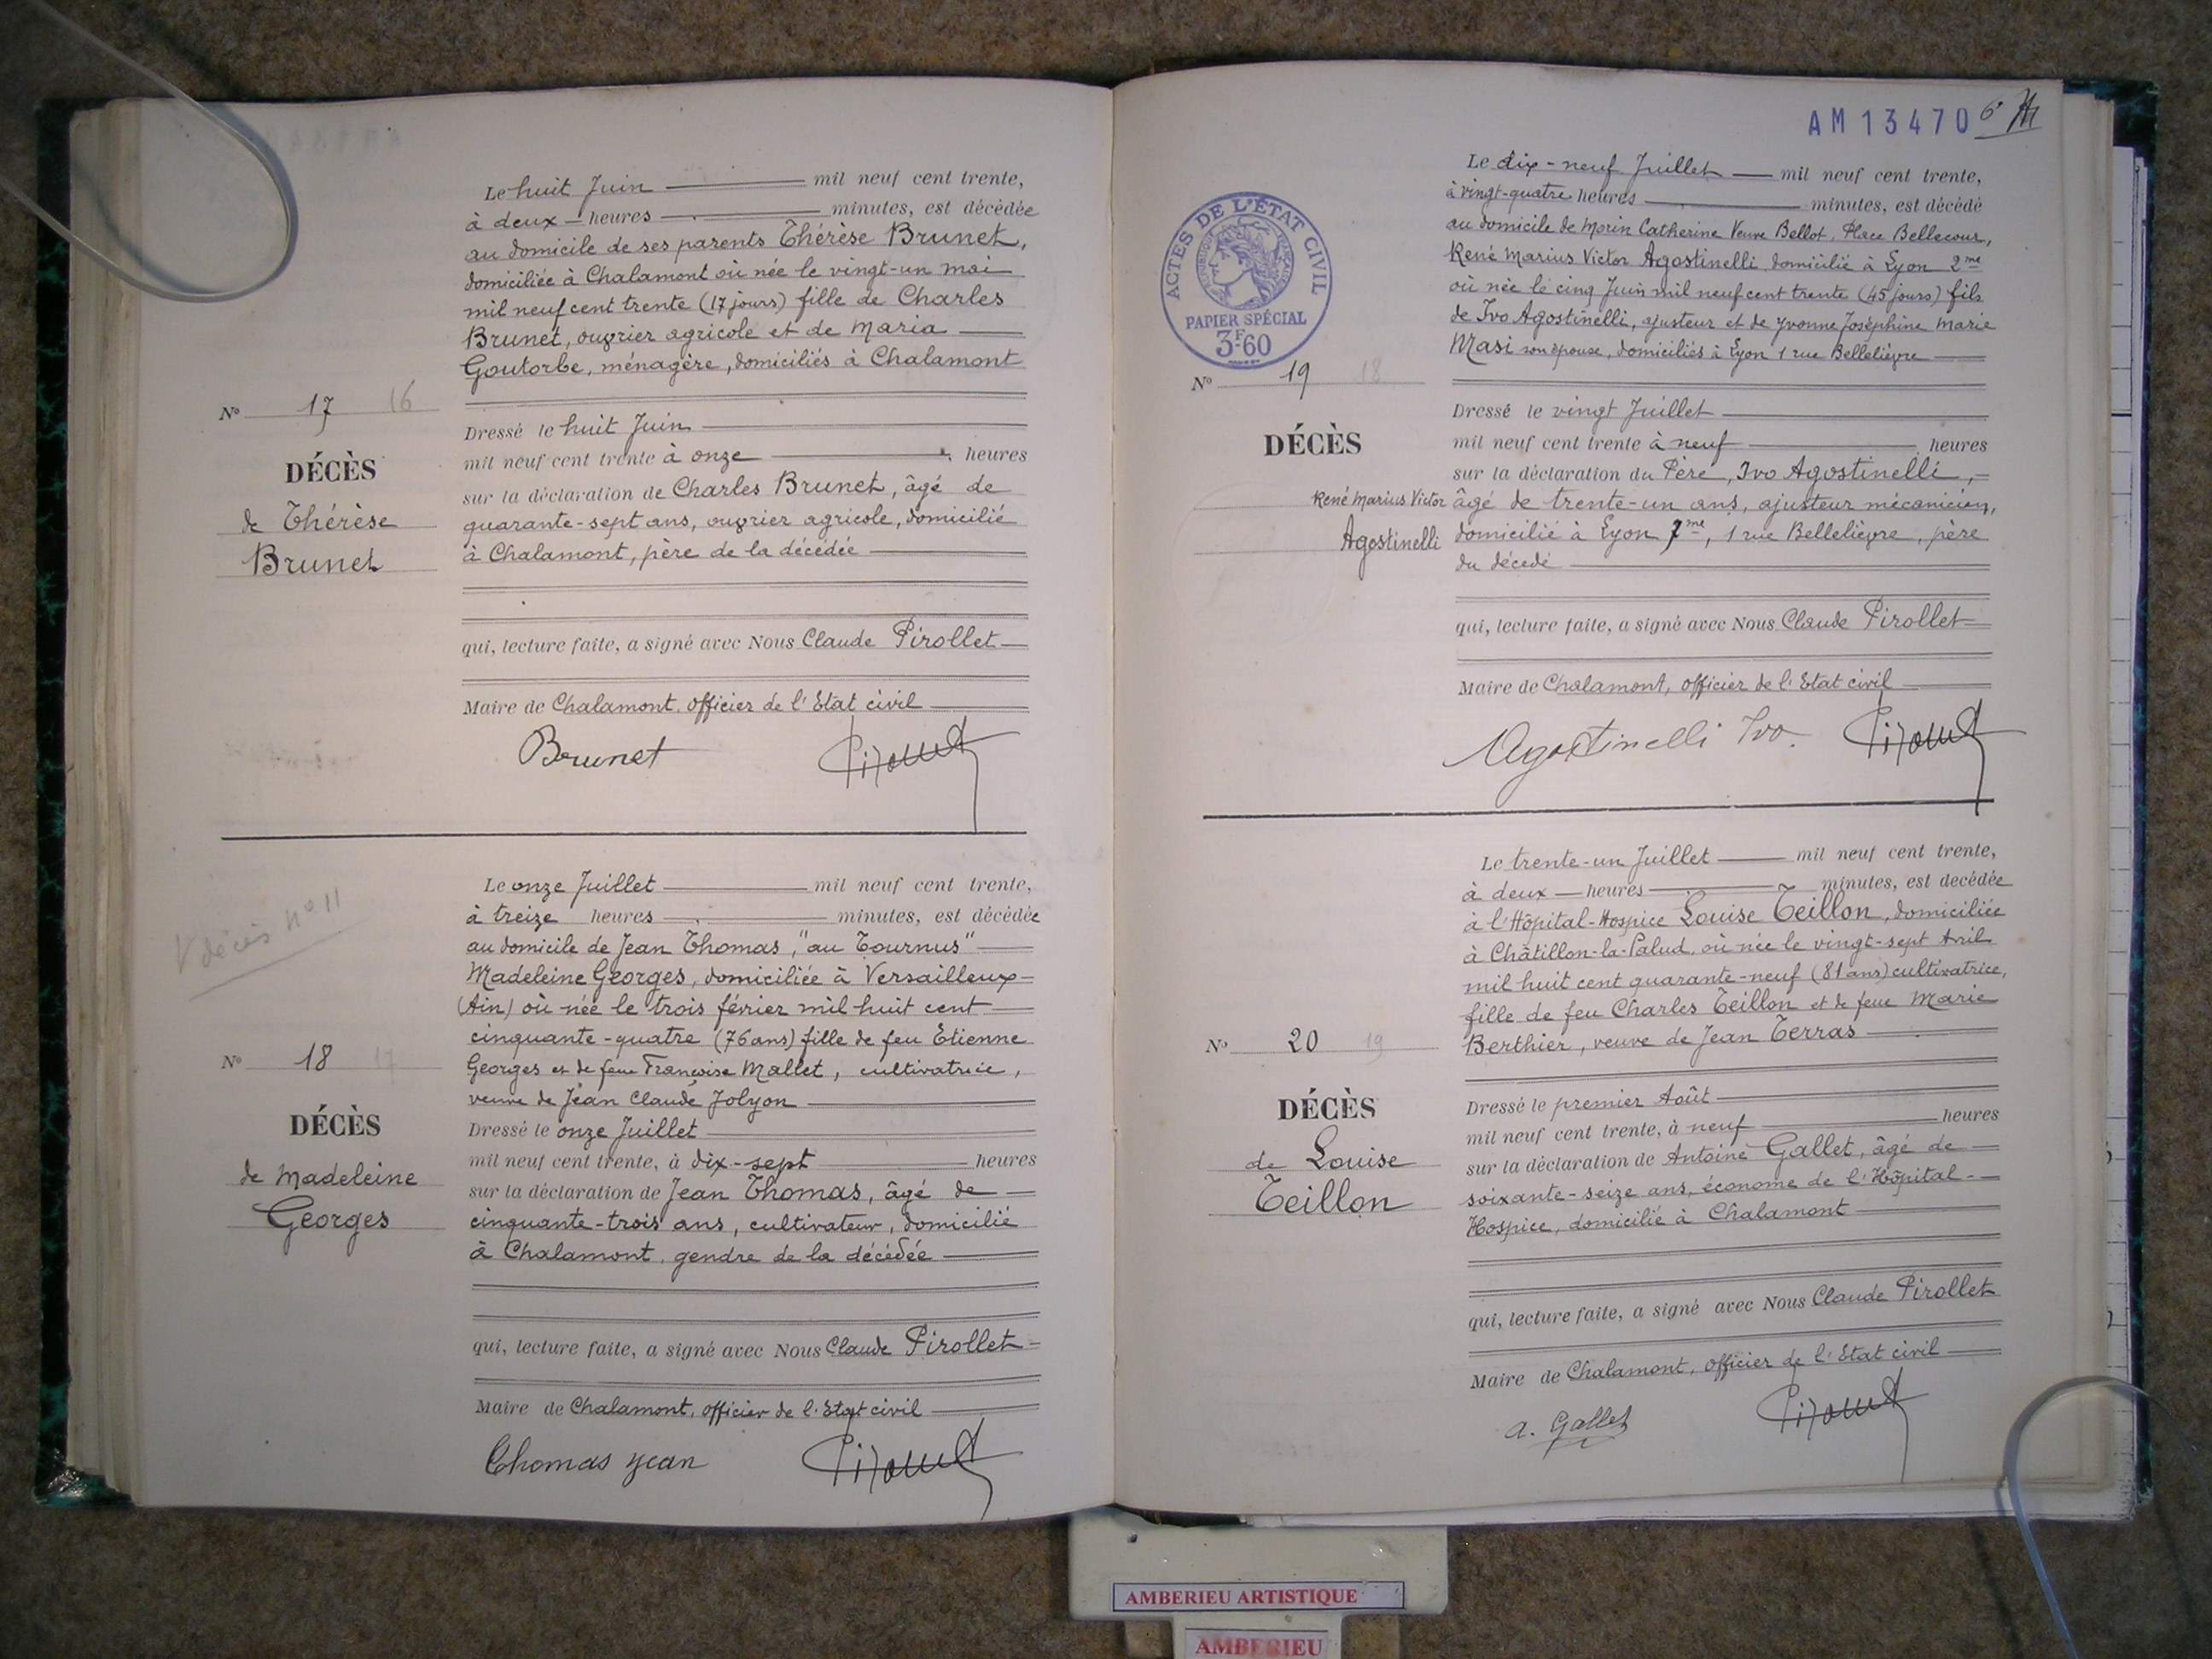 Le huit Juin mil neuf cent trente,
à deux heures minutes, est décédée
au domicile de ses parents Thérèse Brunet,
domiciliée à Chalamont où née le vingt-un mai
mil neuf cent trente (17 jours) fille de Charles
Brunet, ouvrier agricole et de Maria
Goutorbe, ménagère, domiciliés à Chalamont
No 17 16
DÉCÈS
de Thérèse
Brunet
Dressé le huit Juin
mil neuf cent trente à onze heures
sur la déclaration de Charles Brunet, âgé de
quarante-sept ans, ouvrier agricole, domicilié
à Chalamont, père de la décédée
qui, lecture faite, a signé avec Nous Claude Pirollet
Maire de Chalamont, officier de l'Etat civil
Brunet Pirollet
V décès n° 11
Le onze Juillet mil neuf cent trente,
à treize heures minutes, est décédée
au domicile de Jean Thomas, "au Tournus"
Madeleine Georges, domiciliée à Versailleux
(Ain) où née le trois février mil huit cent
cinquante-quatre (76 ans) fille de feu Etienne
Georges et de feue Françoise Mallet, cultivatrice,
veuve de Jean Claude Jolyon
No 18 17
DÉCÈS
de Madeleine
Georges
Dressé le onze Juillet
mil neuf cent trente, à dix-sept heures
sur la déclaration de Jean Thomas, âgé de
cinquante-trois ans, cultivateur, domicilié
à Chalamont, gendre de la décédée
qui, lecture faite, a signé avec Nous Claude Pirollet
Maire de Chalamont, officier de l'Etat civil
Thomas Jean Pirollet
AM13470 6e
ACTES DE L'ÉTAT CIVIL
RÉPUBLIQUE FRANÇAISE
PAPIER SPÉCIAL
3F60
Le dix-neuf Juillet mil neuf cent trente,
à vingt-quatre heures minutes, est décédé
au domicile de Morin Catherine Veuve Bellot, Place Bellecour,
René Marius Victor Agostinelli domicilié à Lyon 2me
où née le cinq Juin mil neuf cent trente (45 jours) fils
de Ivo Agostinelli, ajusteur et de Yvonne Joséphine Marie
Masi son épouse, domiciliés à Lyon 1 rue Bellelièvre
No 19 18
DÉCÈS
René Marius Victor
Agostinelli
Dressé le vingt Juillet
mil neuf cent trente à neuf heures
sur la déclaration du Père, Ivo Agostinelli,
âgé de trente-un ans, ajusteur mécanicien,
domicilié à Lyon 7me, 1 rue Bellelièvre, père
du décédé
qui, lecture faite, a signé avec Nous Claude Pirollet
Maire de Chalamont, officier de l'Etat civil
Agostinelli Ivo. Pirollet
Le trente-un Juillet mil neuf cent trente,
à deux heures minutes, est décédée
à l'Hôpital-Hospice Louise Teillon, domiciliée
à Châtillon-la-Palud, où née le vingt-sept Avril
mil huit cent quarante-neuf (81 ans) cultivatrice,
fille de feu Charles Teillon et de feue Marie
Berthier, veuve de Jean Terras
No 20 19
DÉCÈS
de Louise
Teillon
Dressé le premier Août
mil neuf cent trente, à neuf heures
sur la déclaration de Antoine Gallet, âgé de
soixante-seize ans, économe de l'Hôpital-
Hospice, domicilié à Chalamont
qui, lecture faite, a signé avec Nous Claude Pirollet
Maire de Chalamont, officier de l'Etat civil
a. Gallet Pirollet
AMBERIEU ARTISTIQUE
AMBERIEU